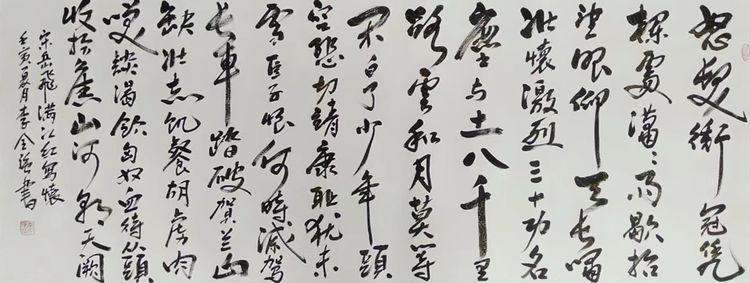 怒髮衝冠凭
欄處瀟瀟雨歇抬
望眼仰天長嘯
壯懷激烈三十功名
塵与土八千里
路雲和月莫等
閒白了少年頭
空悲切靖康恥猶未
雪臣子恨何時滅駕
長車踏破賀兰山
缺壯志飢餐胡虜肉
笑談渴飲匈奴血待從頭
收拾舊山河朝天闕
宋岳飛滿江紅寫懷
壬寅夏月李全書